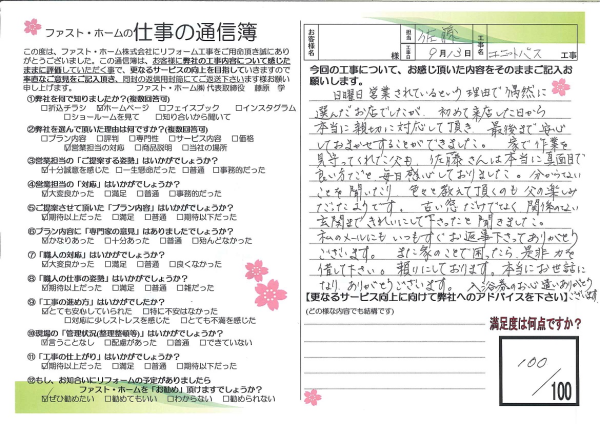 ファスト・ホームの仕事の通信簿
この度は、ファスト・ホーム株式会社にリフォーム工事をご用命頂き誠にあり
がとうございました。この通信簿は、お客様に弊社の工事内容について感じた
ままに評価していただく事で、更なるサービスの向上を目指していきますので
率直なご意見をご記入頂き、同封の返信用封筒にてご返送下さいます様お願い
申し上げます。 ファスト・ホーム㈱ 代表取締役 藤原 学
①弊社を何で知りましたか?(複数回答可)
□折込チラシ ☑ホームページ □フェイスブック □インスタグラム
□ショールームを見て □知り合いから聞いて
②弊社を選んで頂いた理由は何ですか?(複数回答可)
□プラン内容 □評判 □専門性 □サービス内容 □価格
☑営業担当の対応 □商品説明 □当社の場所
③営業担当の「ご提案する姿勢」はいかがでしょうか?
☑十分誠意を感じた □一生懸命だった □普通 □事務的だった
④営業担当の「対応」はいかがでしょうか?
☑大変良かった □満足 □普通 □事務的だった
⑤ご提案させて頂いた「プラン内容」はいかがでしょうか?
☑期待以上だった □満足 □普通 □期待以下だった
⑥プラン内容に「専門家の意見」はありましたでしょうか?
☑かなりあった □十分あった □普通 □殆んどなかった
⑦「職人の対応」はいかがでしょうか?
☑大変良かった □満足 □普通 □良くなかった
⑧「職人の仕事の姿勢」はいかがでしょうか?
☑期待以上だった □満足 □普通 □雑だった
⑨「工事の進め方」はいかがでしたか?
☑とても安心していられた □特に不安はなかった
□対応に少しストレスを感じた □とても不満を感じた
⑩現場の「管理状況(整理整頓等)」はいかがでしたか?
☑言うことなし □配慮があった □普通 □できていない
⑪「工事の仕上がり」はいかがでしょうか?
☑期待以上だった □満足 □普通 □期待以下だった
⑫もし、お知合いにリフォームの予定がありましたら
ファスト・ホームを「お勧め」頂けますでしょうか?
☑ぜひ勧めたい □勧めてもいい □わからない □勧められない
お客様名 様 担当 佐藤 工事日 9月13日 工事名 ユニットバス 工事
今回の工事について、お感じ頂いた内容をそのままご記入お
願いします。
日曜日営業されているという理由で偶然に
選んだお店でしたが、初めて来店した日から
本当に親切に対応して頂き、最後まで安心
しておまかせすることができました。家で作業を
見守ってくれた父も、佐藤さんは本当に真面目で
良い方だと毎日感心しておりました。分からない
ことを聞いたり、色々と教えて頂くのも父の楽しみ
だったようです。古い窓だけでなく関係のない
玄関まできれいにして下さったと聞きました。
私のメールにもいつもすぐお返事下さってありがとう
ございます。また家のことで困ったら、是非力を
借して下さい。頼りにしております。本当にお世話に
なり、ありがとうございます。入浴剤のお心遣いありがとう
ございます
【更なるサービス向上に向けて弊社へのアドバイスを下さい】
(どの様な内容でも結構です)
満足度は何点ですか?
100
/100